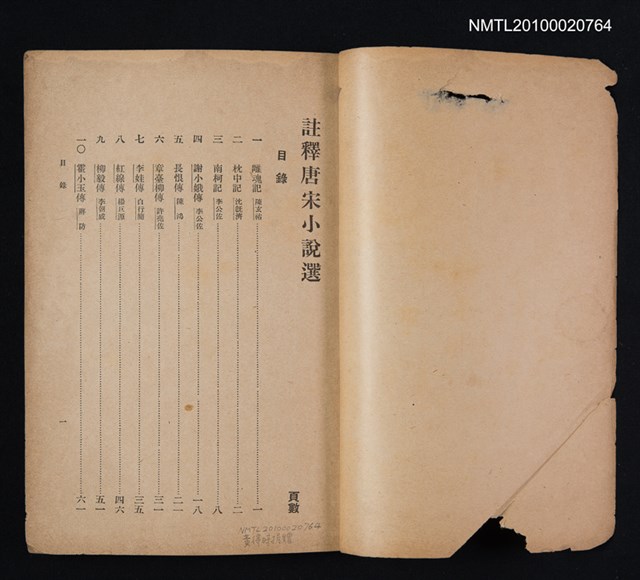 NMTL20100020764
註釋唐宋小說選
目錄
頁數
一 離魂記 陳玄祐 一
二 枕中記 沈旣濟 二
三 南柯記 李公佐 八
四 謝小娥傳 李公佐 一八
五 長恨傳 陳鴻 二一
六 章臺柳傳 許堯佐 三一
七 李娃傳 白行簡 三五
八 紅線傳 楊巨源 四六
九 柳毅傳 李朝威 五一
一〇 霍小玉傳 蔣防 六一
目錄
一
NMTL20100020764